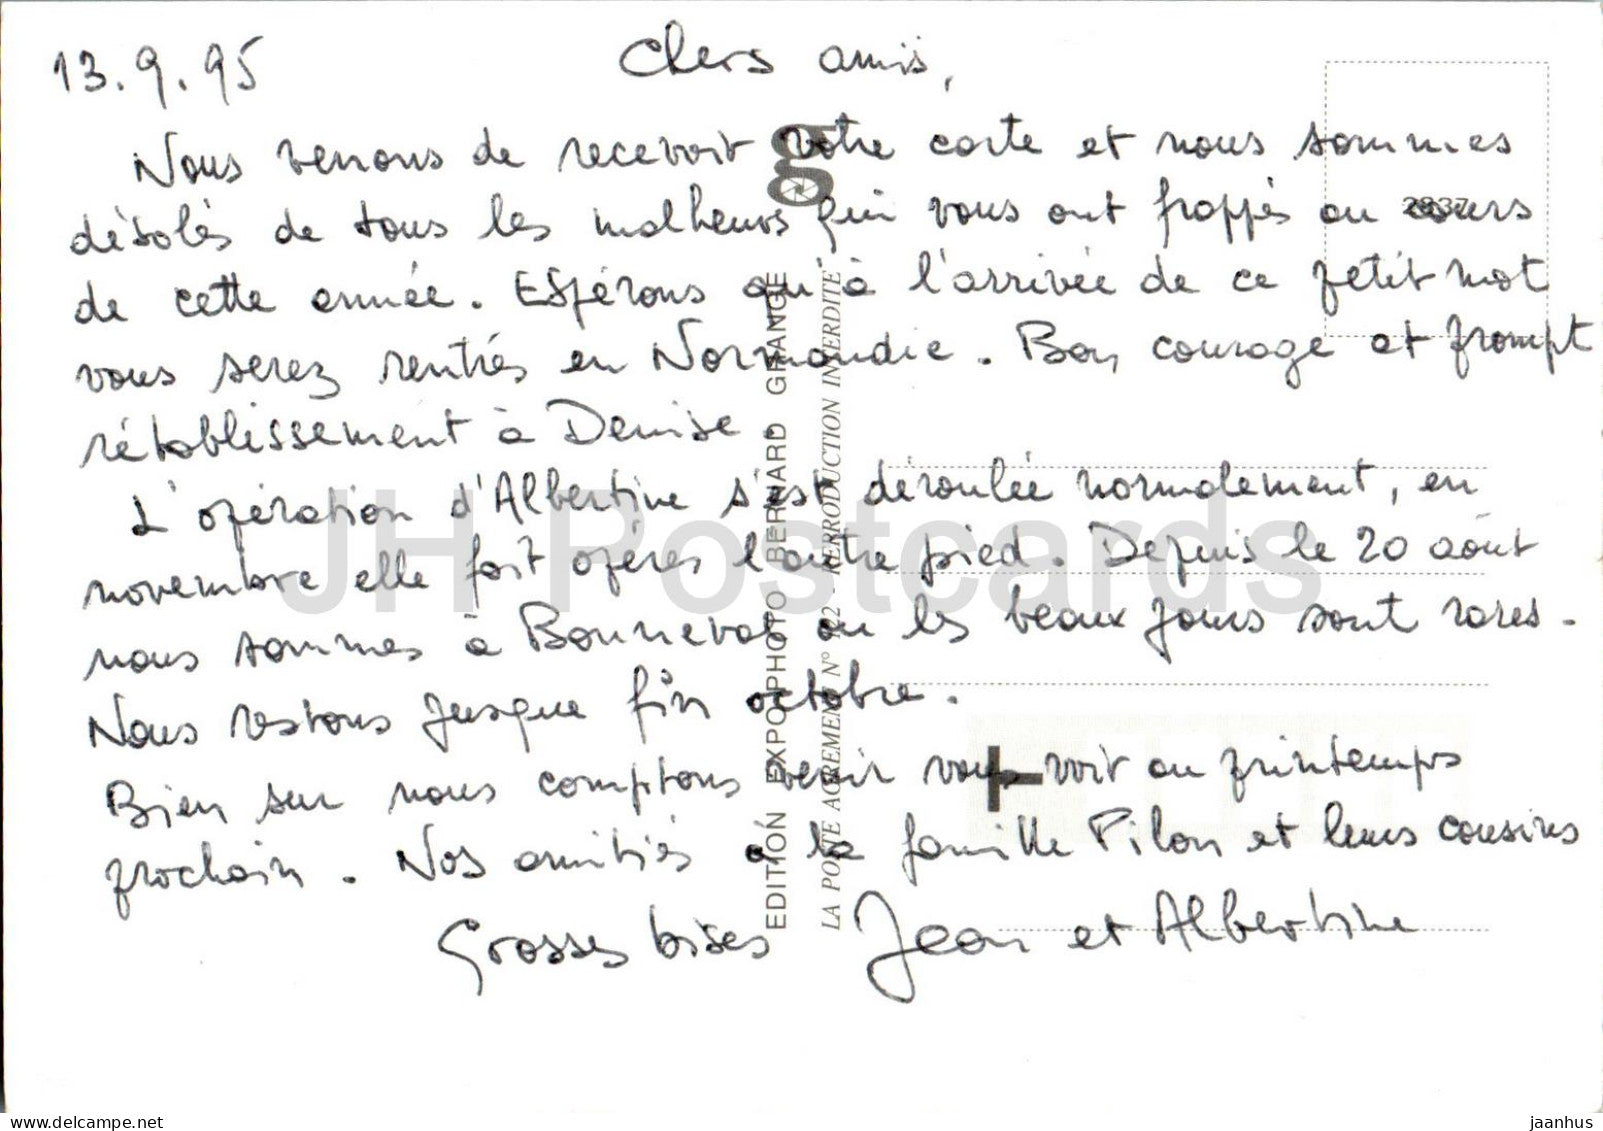 13.9.95 Chers amis,
Nous venons de recevoir votre carte et nous sommes
désolés de tous les malheurs qui vous ont frappés au cours
de cette année. Espérons qu'à l'arrivée de ce petit mot
vous serez rentrés en Normandie. Bon courage et prompt
rétablissement à Denise.
L'opération d'Albertine s'est déroulée normalement, en
novembre elle fait opérer l'autre pied. Depuis le 20 août
nous sommes à Bonneval où les beaux jours sont rares.
Nous restons jusque fin octobre.
Bien sur nous comptons venir vous voir au printemps
prochain. Nos amitiés à la famille Pilon et leurs cousins
Grosses bises Jean et Albertine
g
EDITION EXPO PHOTO BERNARD GRANGE
LA POSTE AGREMENT N° 022 - REPRODUCTION INTERDITE
JH Postcards
delcampe.net
jaanhus